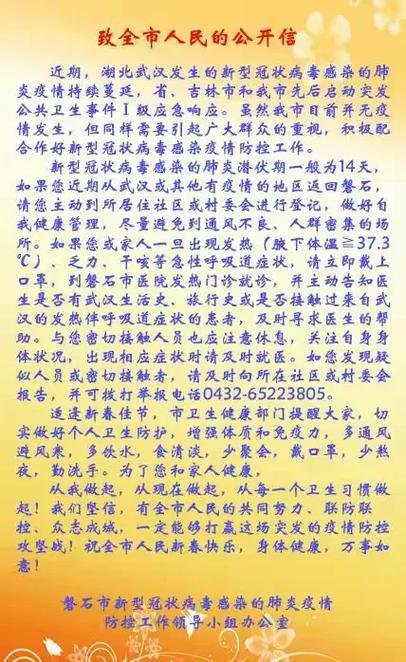 致全市人民的公开信
近期，湖北武汉发生的新型冠状病毒感染的肺
炎疫情持续蔓延，省、吉林市和我市先后启动突发
公共卫生事件Ⅰ级应急响应。虽然我市目前并无疫
情发生，但同样需要引起广大群众的重视，积极配
合作好新型冠状病毒感染疫情防控工作。
新型冠状病毒感染的肺炎潜伏期一般为14天，
如果您近期从武汉或其他有疫情的地区返回磐石，
请您主动到所居住社区或村委会进行登记，做好自
我健康管理，尽量避免到通风不良、人群密集的场
所。如果您或家人一旦出现发热（腋下体温≧37.3
℃）、乏力、干咳等急性呼吸道症状，请立即戴上
口罩，到磐石市医院发热门诊就诊，并主动告知医
生是否有武汉生活史、旅行史或是否接触过来自武
汉的发热伴呼吸道症状的患者，及时寻求医生的帮
助。与您密切接触人员也应注意休息，关注自身身
体状况，出现相应症状时请及时就医。如您发现疑
似人员或密切接触者，请及时向所在社区或村委会
报告，并可拨打举报电话0432-65223805。
适逢新春佳节，市卫生健康部门提醒大家，切
实做好个人卫生防护，增强体质和免疫力，多通风
避风寒，多饮水，食清淡，少聚会，戴口罩，少熬
夜，勤洗手。为了您和家人健康，
从我做起，从现在做起，从每一个卫生习惯做
起！我们坚信，有全市人民的共同努力、联防联
控、众志成城，一定能够打赢这场突发的疫情防控
攻坚战！祝全市人民新春快乐，身体健康，万事如
意！
磐石市新型冠状病毒感染的肺炎疫情
防控工作领导小组办公室